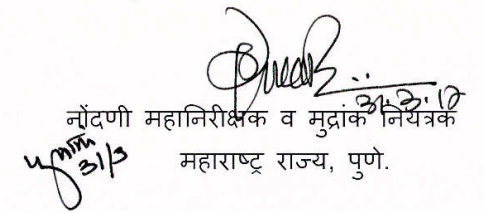 31.3.17
नोंदणी महानिरीक्षक व मुद्रांक नियंत्रक
31/3
महाराष्ट्र राज्य, पुणे.